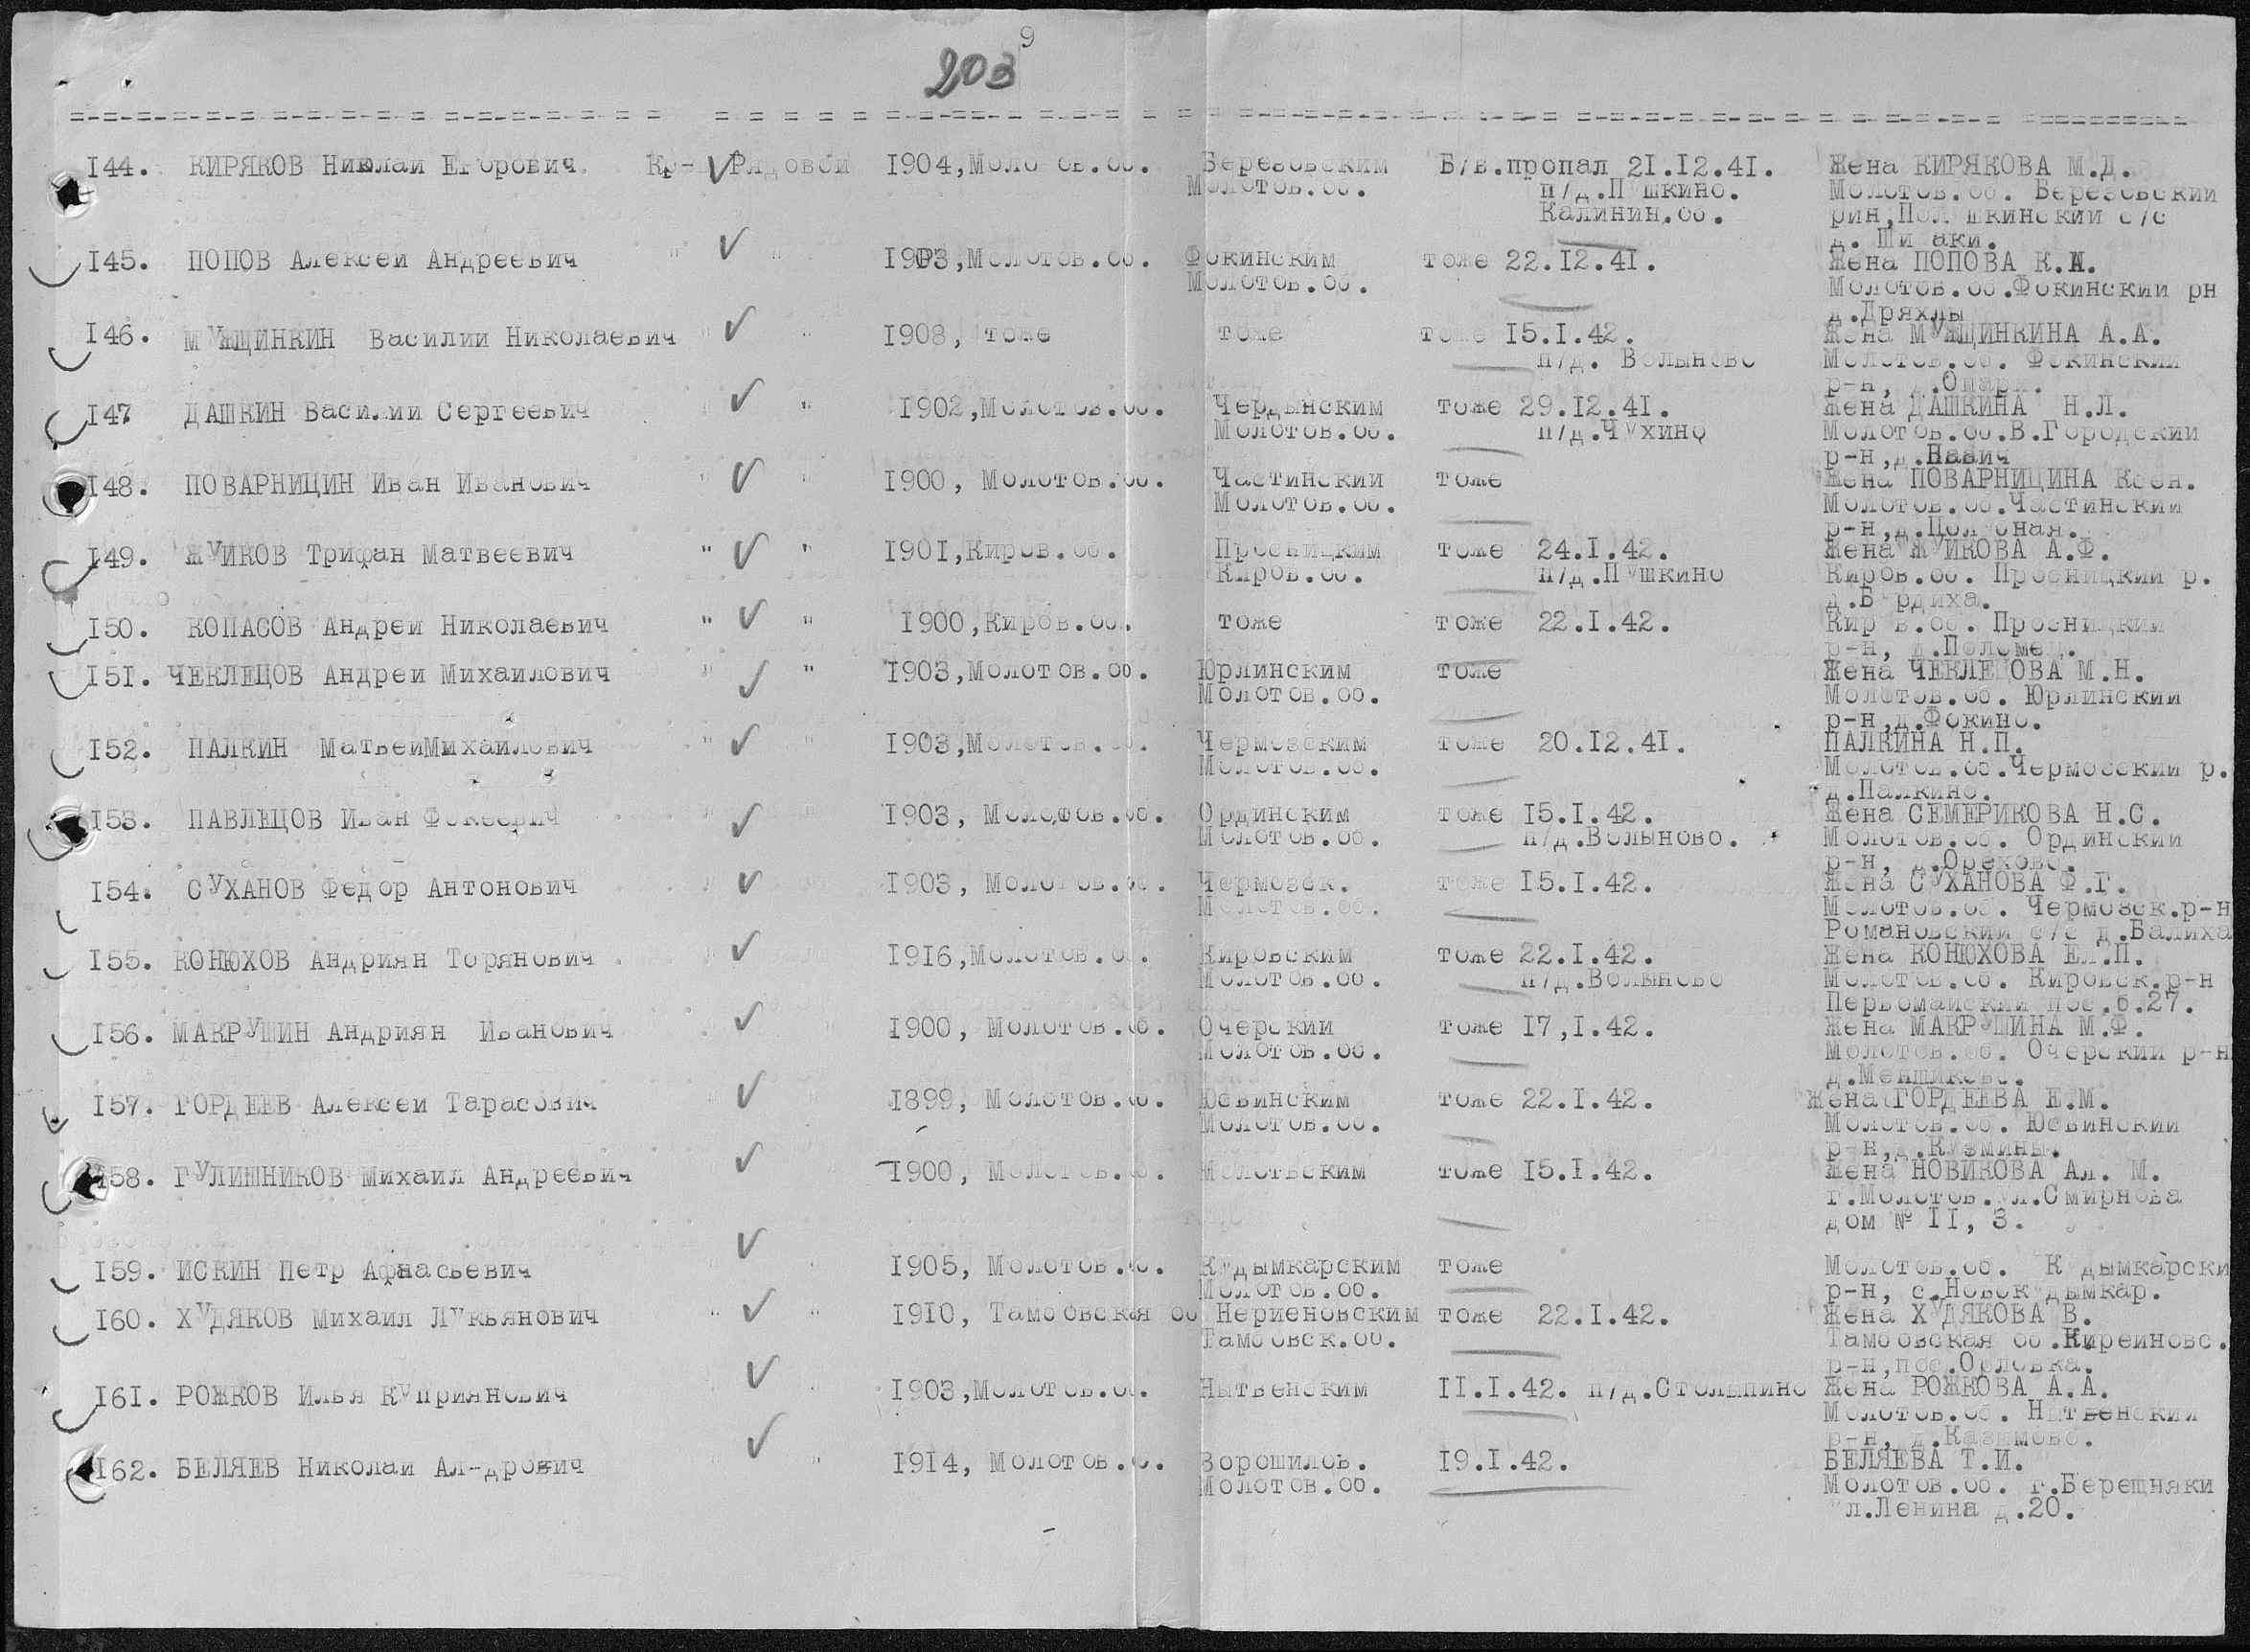 9
203
144. КИРЯКОВ Николай Егорович. Кр- Рядовой 1904, Березовским Б/в.пропал 21.12.41. Жена КИРЯКОВА М.Д.
Молотов.об. п/д.Пушкино. Молотов.об. Березовский
Калинин.об. рин, с/с
д.
145. ПОПОВ Алексей Андреевич " " 1903,Молотов.об. Фокинским тоже 22.12.41. Жена ПОПОВА К.И.
Молотов.об. Молотов.об.Фокинский рн
д.Дряхлы
146. МУЖЩИНКИН Василий Николаевич " " 1908, тоже тоже тоже 15.I.42. Жена МУЖЩИНКИНА А.А.
п/д. Волыново Молотов.об. Фокинский
р-н,
147 ДАШКИН Василий Сергеевич " 1902,Молотов.об. Чердынским тоже 29.12.41. Жена ДАШКИНА Н.Л.
Молотов.об. п/д.Чухино Молотов.об.В.Городский
р-н,д.
148. ПОВАРНИЦИН Иван Иванович " " 1900, Молотов.об. Частинский тоже Жена ПОВАРНИЦИНА Ксен.
Молотов.об. Молотов.об.Частинский
р-н,д.
149. ЖУЙКОВ Трифан Матвеевич " " 1901,Киров.об. Просницким тоже 24.I.42. Жена ЖУЙКОВА А.Ф.
Киров.об. п/д.Пушкино Киров.об. Просницкий р.
150. КОПАСОВ Андрей Николаевич " " 1900,Киров.об. тоже тоже 22.I.42. Киров.об. Просницкий
р-н,
151. ЧЕКЛЕЦОВ Андрей Михайлович " " 1903,Молотов.об. Юрлинским тоже Жена ЧЕКЛЕЦОВА М.Н.
Молотов.об. Молотов.об. Юрлинский
р-н,д.Фокино.
152. ПАЛКИН МатвейМихайлович " " 1903,Молотов.об. Чермозским тоже 20.12.41. ПАЛКИНА Н.П.
Молотов.об. Молотов.об.Чермозский р.
д.Палкино.
153. ПАВЛЕЦОВ Иван Фокеевич " " 1903, Молотов.об. Ординским тоже 15.I.42. Жена СЕМЕРИКОВА Н.С.
Молотов.об. п/д.Волыново. Молотов.об. Ординский
р-н, д.Орехово.
154. СУХАНОВ Федор Антонович " " 1903, Молотов.об. Чермозск. тоже 15.I.42. Жена СУХАНОВА Ф.Г.
Молотов.об. Молотов.об. Чермозск.р-н
Романовский с/с д.Балиха
155. КОНЮХОВ Андриян Торянович. 1916,Молотов.об. Кировским тоже 22.I.42. Жена КОНЮХОВА Ел.П.
Молотов.об. п/д.Волыново Молотов.об. Кировск.р-н
Первомайский пос.б.27.
156. МАКРУШИН Андриян Иванович 1900, Молотов.об. Очерский тоже 17,I.42. Жена МАКРУШИНА М.Ф.
Молотов.об. Молотов.об. Очерский р-н
д.Менщиково.
157. ГОРДЕЕВ Алексей Тарасович 1899, Молотов.об. Юсвинским тоже 22.I.42. Жена ГОРДЕЕВА Е.М.
Молотов.об. Молотов.об. Юсвинский
р-н,д.Кузмины.
158. ГУЛИШНИКОВ Михаил Андреевич 1900, Молотов.об. тоже 15.I.42. Жена НОВИКОВА Ал. М.
г.Молотов.ул.Смирнова
дом № II, 3.
159. ИСКИН Петр Афнасьевич 1905, Молотов.об. Кудымкарским тоже Молотов.об. Кудымкарски
Молотов.об. р-н, с.Новокудымкар.
160. ХУДЯКОВ Михаил Лукьянович " " 1910, Тамбовская об Нериеновским тоже 22.I.42. Жена ХУДЯКОВА В.
Тамбовск.об. Тамбовская об.Киреиновс.
р-н,пос.Орловка.
161. РОЖКОВ Илья Куприянович " 1903,Молотов.об. Нытвенским II.I.42. п/д.Столыпино Жена РОЖКОВА А.А.
Молотов.об. Нытвенский
р-н,
162. БЕЛЯЕВ Николай Ал-дрович " " 1914, Молотов.об. Ворошилов. 19.I.42. БЕЛЯЕВА Т.И.
Молотов.об. Молотов.об. г.Берещняки
ул.Ленина д.20.